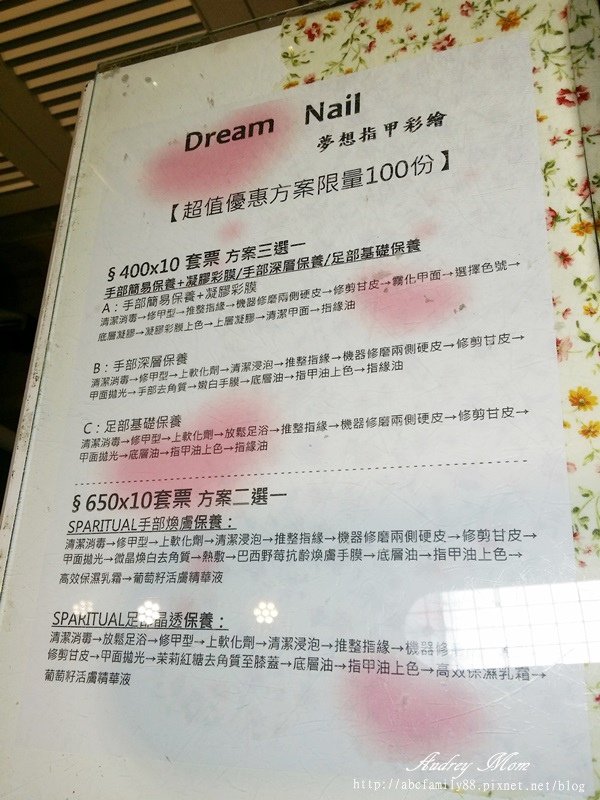 Dream Nail
夢想指甲彩繪
【超值優惠方案限量100份】
§400x10 套票 方案三選一
手部簡易保養+凝膠彩膜/手部深層保養/足部基礎保養
A：手部簡易保養+凝膠彩膜
清潔消毒→修甲型→推整指緣→機器修磨兩側硬皮→修剪甘皮→霧化甲面→選擇色號→
底層凝膠→凝膠彩膜上色→上層凝膠→清潔甲面→指緣油
B：手部深層保養
清潔消毒→修甲型→上軟化劑→清潔浸泡→推整指緣→機器修磨兩側硬皮→修剪甘皮→
甲面拋光→手部去角質→嫩白手膜→底層油→指甲油上色→指緣油
C：足部基礎保養
清潔消毒→修甲型→上軟化劑→放鬆足浴→推整指緣→機器修磨兩側硬皮→修剪甘皮→
甲面拋光→底層油→指甲油上色→指緣油
§650x10套票 方案二選一
SPARITUAL手部煥膚保養：
清潔消毒→修甲型→上軟化劑→清潔浸泡→推整指緣→機器修磨兩側硬皮→修剪甘皮→
甲面拋光→微晶煥白去角質→熱敷→巴西野莓抗齡煥膚手膜→底層油→指甲油上色→
高效保濕乳霜→葡萄籽活膚精華液
SPARITUAL足部晶透保養：
清潔消毒→放鬆足浴→修甲型→上軟化劑→清潔浸泡→推整指緣→機器修
修剪甘皮→甲面拋光→茉莉紅糖去角質至膝蓋→底層油→指甲油上色→高效保濕乳霜→
葡萄籽活膚精華液
Audrey Mom
http://abcfamily88.pixnet.net/blog